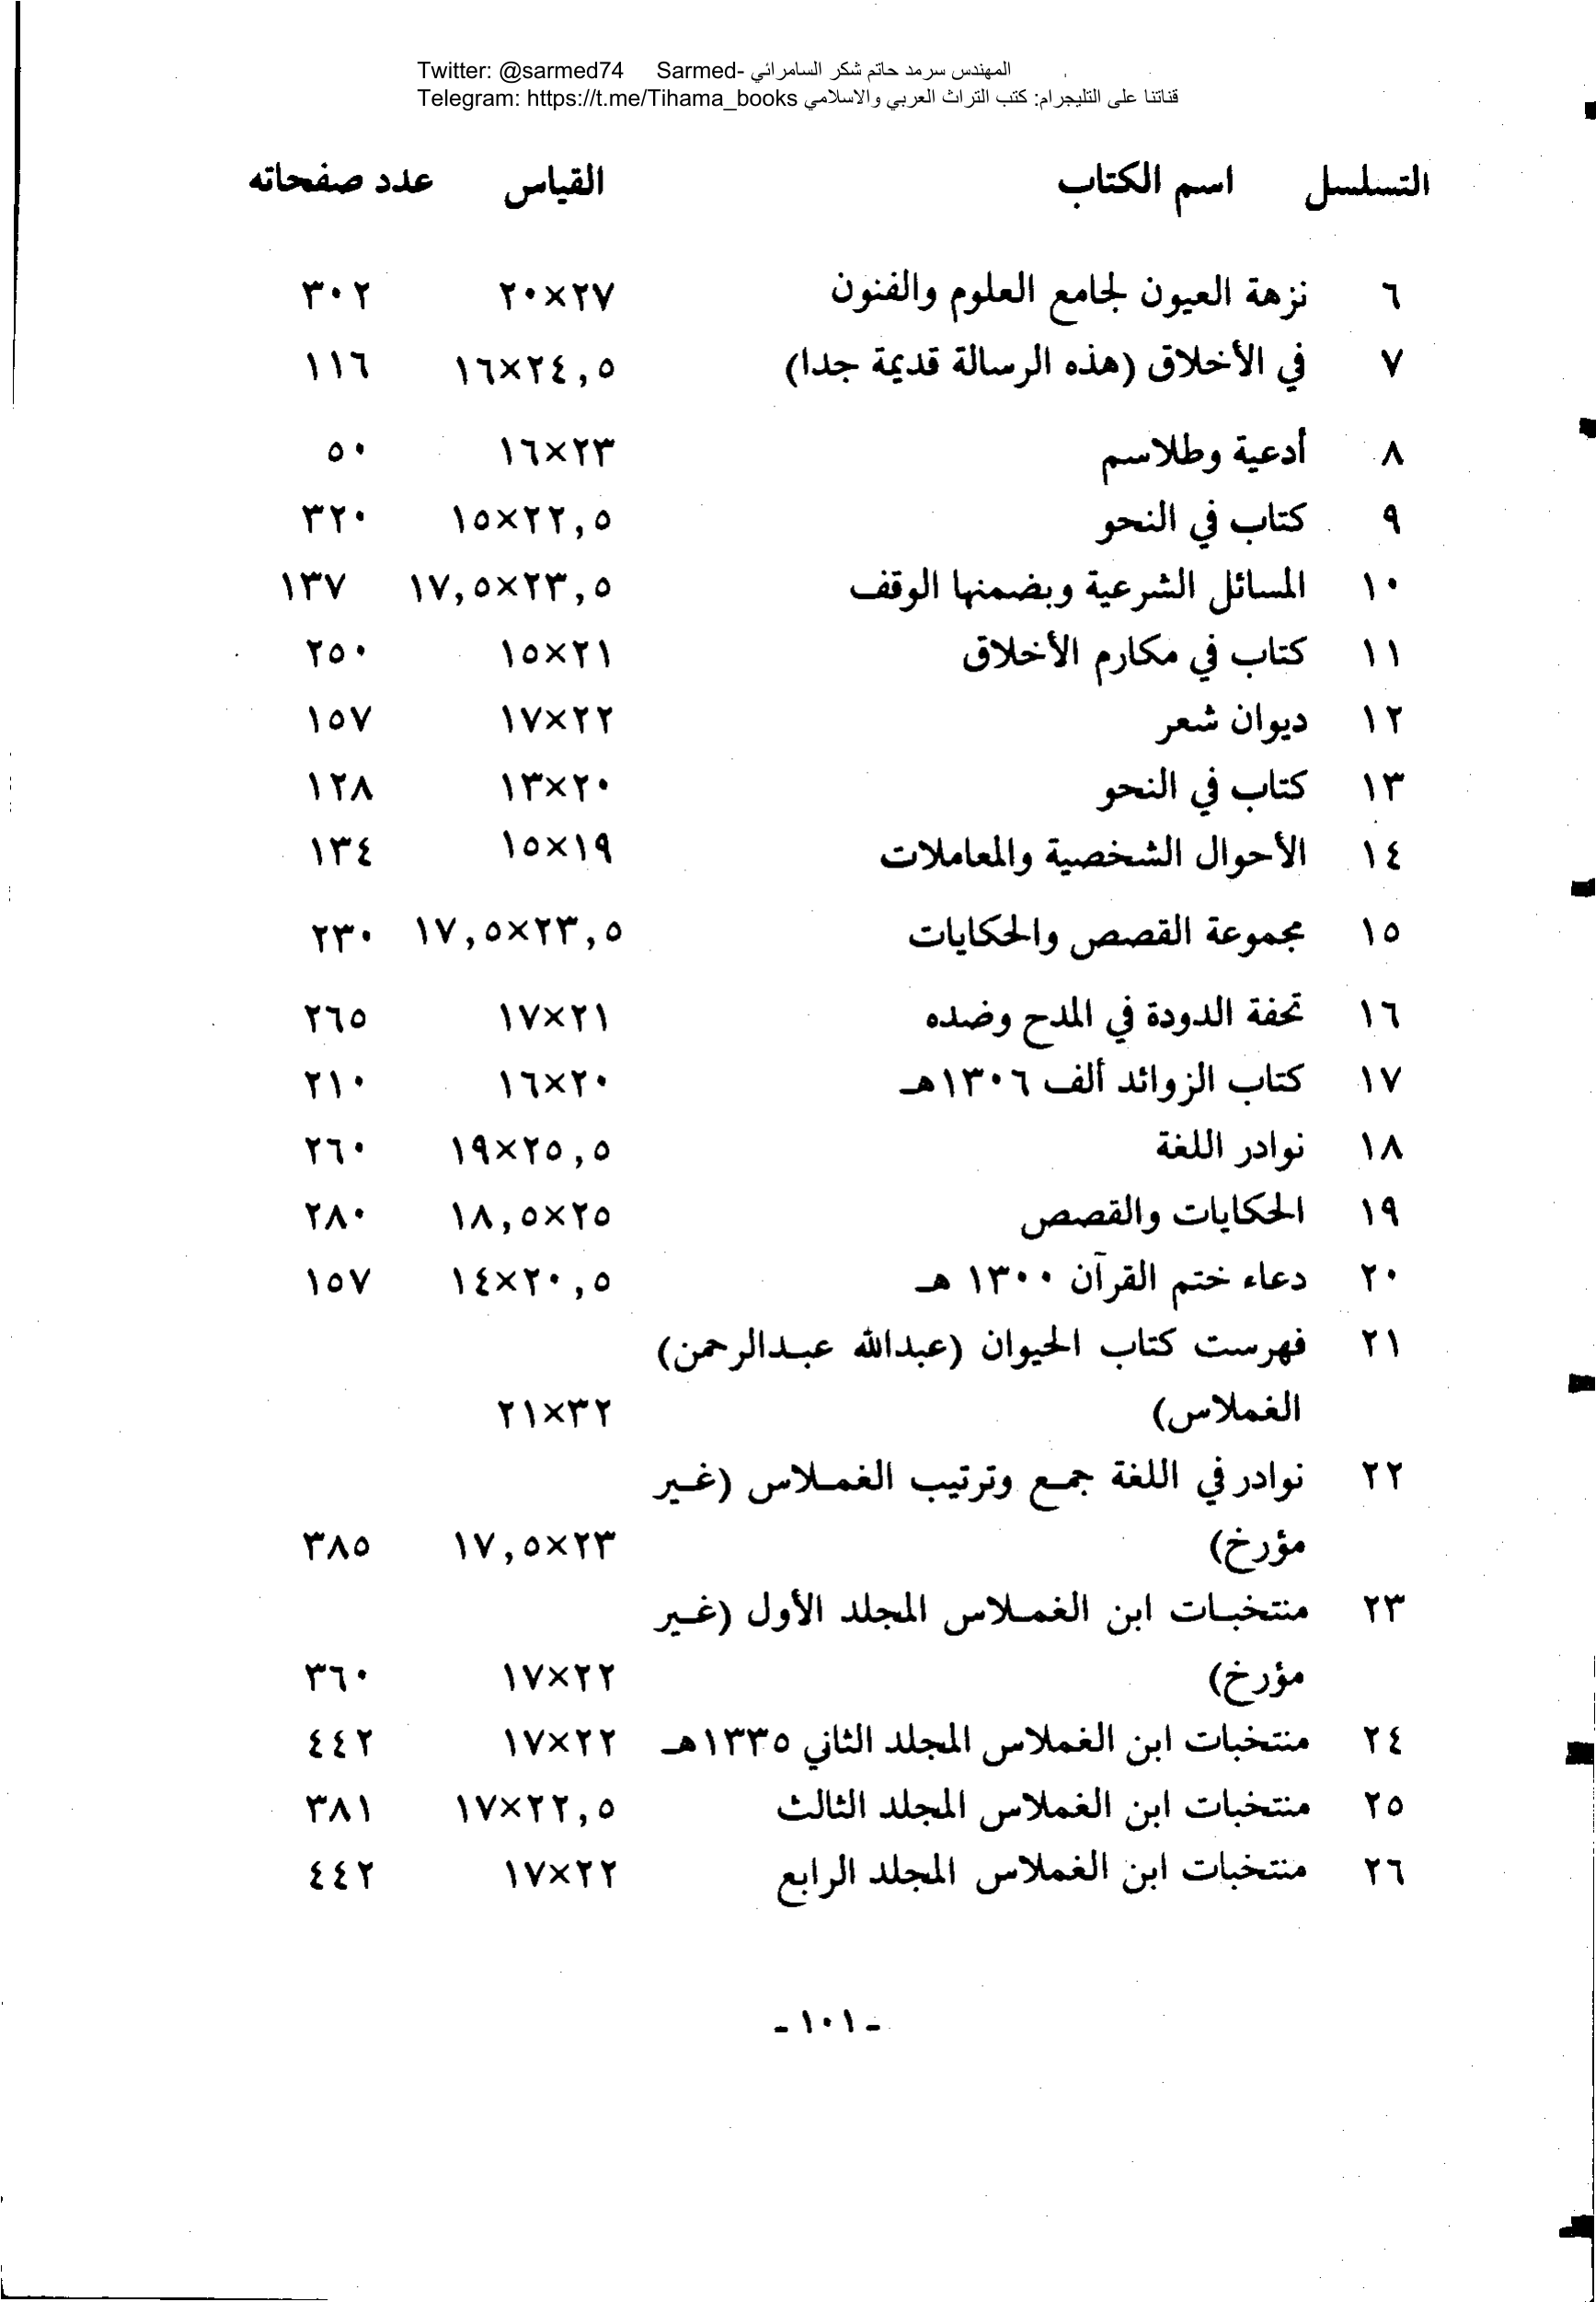 Twitter: @sarmed74 Sarmed- المهندس سرمد حاتم شكر السامرائي
Telegram: https://t.me/Tihama_books قناتنا على التليجرام: كتب التراث العربي والاسلامي
التسلسل اسم الكتاب القياس عدد صفحاته
٦ نزهة العيون لجامع العلوم والفنون ٢٠×٢٧ ٣٠٢
٧ في الأخلاق (هذه الرسالة قديمة جدا) ١٦×٢٤,٥ ١١٦
٨ أدعية وطلاسم ١٦×٢٣ ٥٠
٩ كتاب في النحو ١٥×٢٢,٥ ٣٢٠
١٠ المسائل الشرعية وبضمنها الوقف ١٧,٥×٢٣,٥ ١٣٧
١١ كتاب في مكارم الأخلاق ١٥×٢١ ٢٥٠
١٢ ديوان شعر ١٧×٢٢ ١٥٧
١٣ كتاب في النحو ١٣×٢٠ ١٢٨
١٤ الأحوال الشخصية والمعاملات ١٥×١٩ ١٣٤
١٥ مجموعة القصص والحكايات ١٧,٥×٢٣,٥ ٢٣٠
١٦ تحفة الدودة في المدح وضده ١٧×٢١ ٢٦٥
١٧ كتاب الزوائد ألف ١٣٠٦هـ ١٦×٢٠ ٢١٠
١٨ نوادر اللغة ١٩×٢٥,٥ ٢٦٠
١٩ الحكايات والقصص ١٨,٥×٢٥ ٢٨٠
٢٠ دعاء ختم القرآن ١٣٠٠ هـ ١٤×٢٠,٥ ١٥٧
٢١ فهرست كتاب الحيوان (عبدالله عبدالرحمن)
الغملاس) ٢١×٣٢
٢٢ نوادر في اللغة جمع وترتيب الغملاس (غير
مؤرخ) ١٧,٥×٢٣ ٣٨٥
٢٣ منتخبات ابن الغملاس المجلد الأول (غير
مؤرخ) ١٧×٢٢ ٣٦٠
٢٤ منتخبات ابن الغملاس المجلد الثاني ١٣٣٥هـ ١٧×٢٢ ٤٤٢
٢٥ منتخبات ابن الغملاس المجلد الثالث ١٧×٢٢,٥ ٣٨١
٢٦ منتخبات ابن الغملاس المجلد الرابع ١٧×٢٢ ٤٤٢
- ١٠١ -